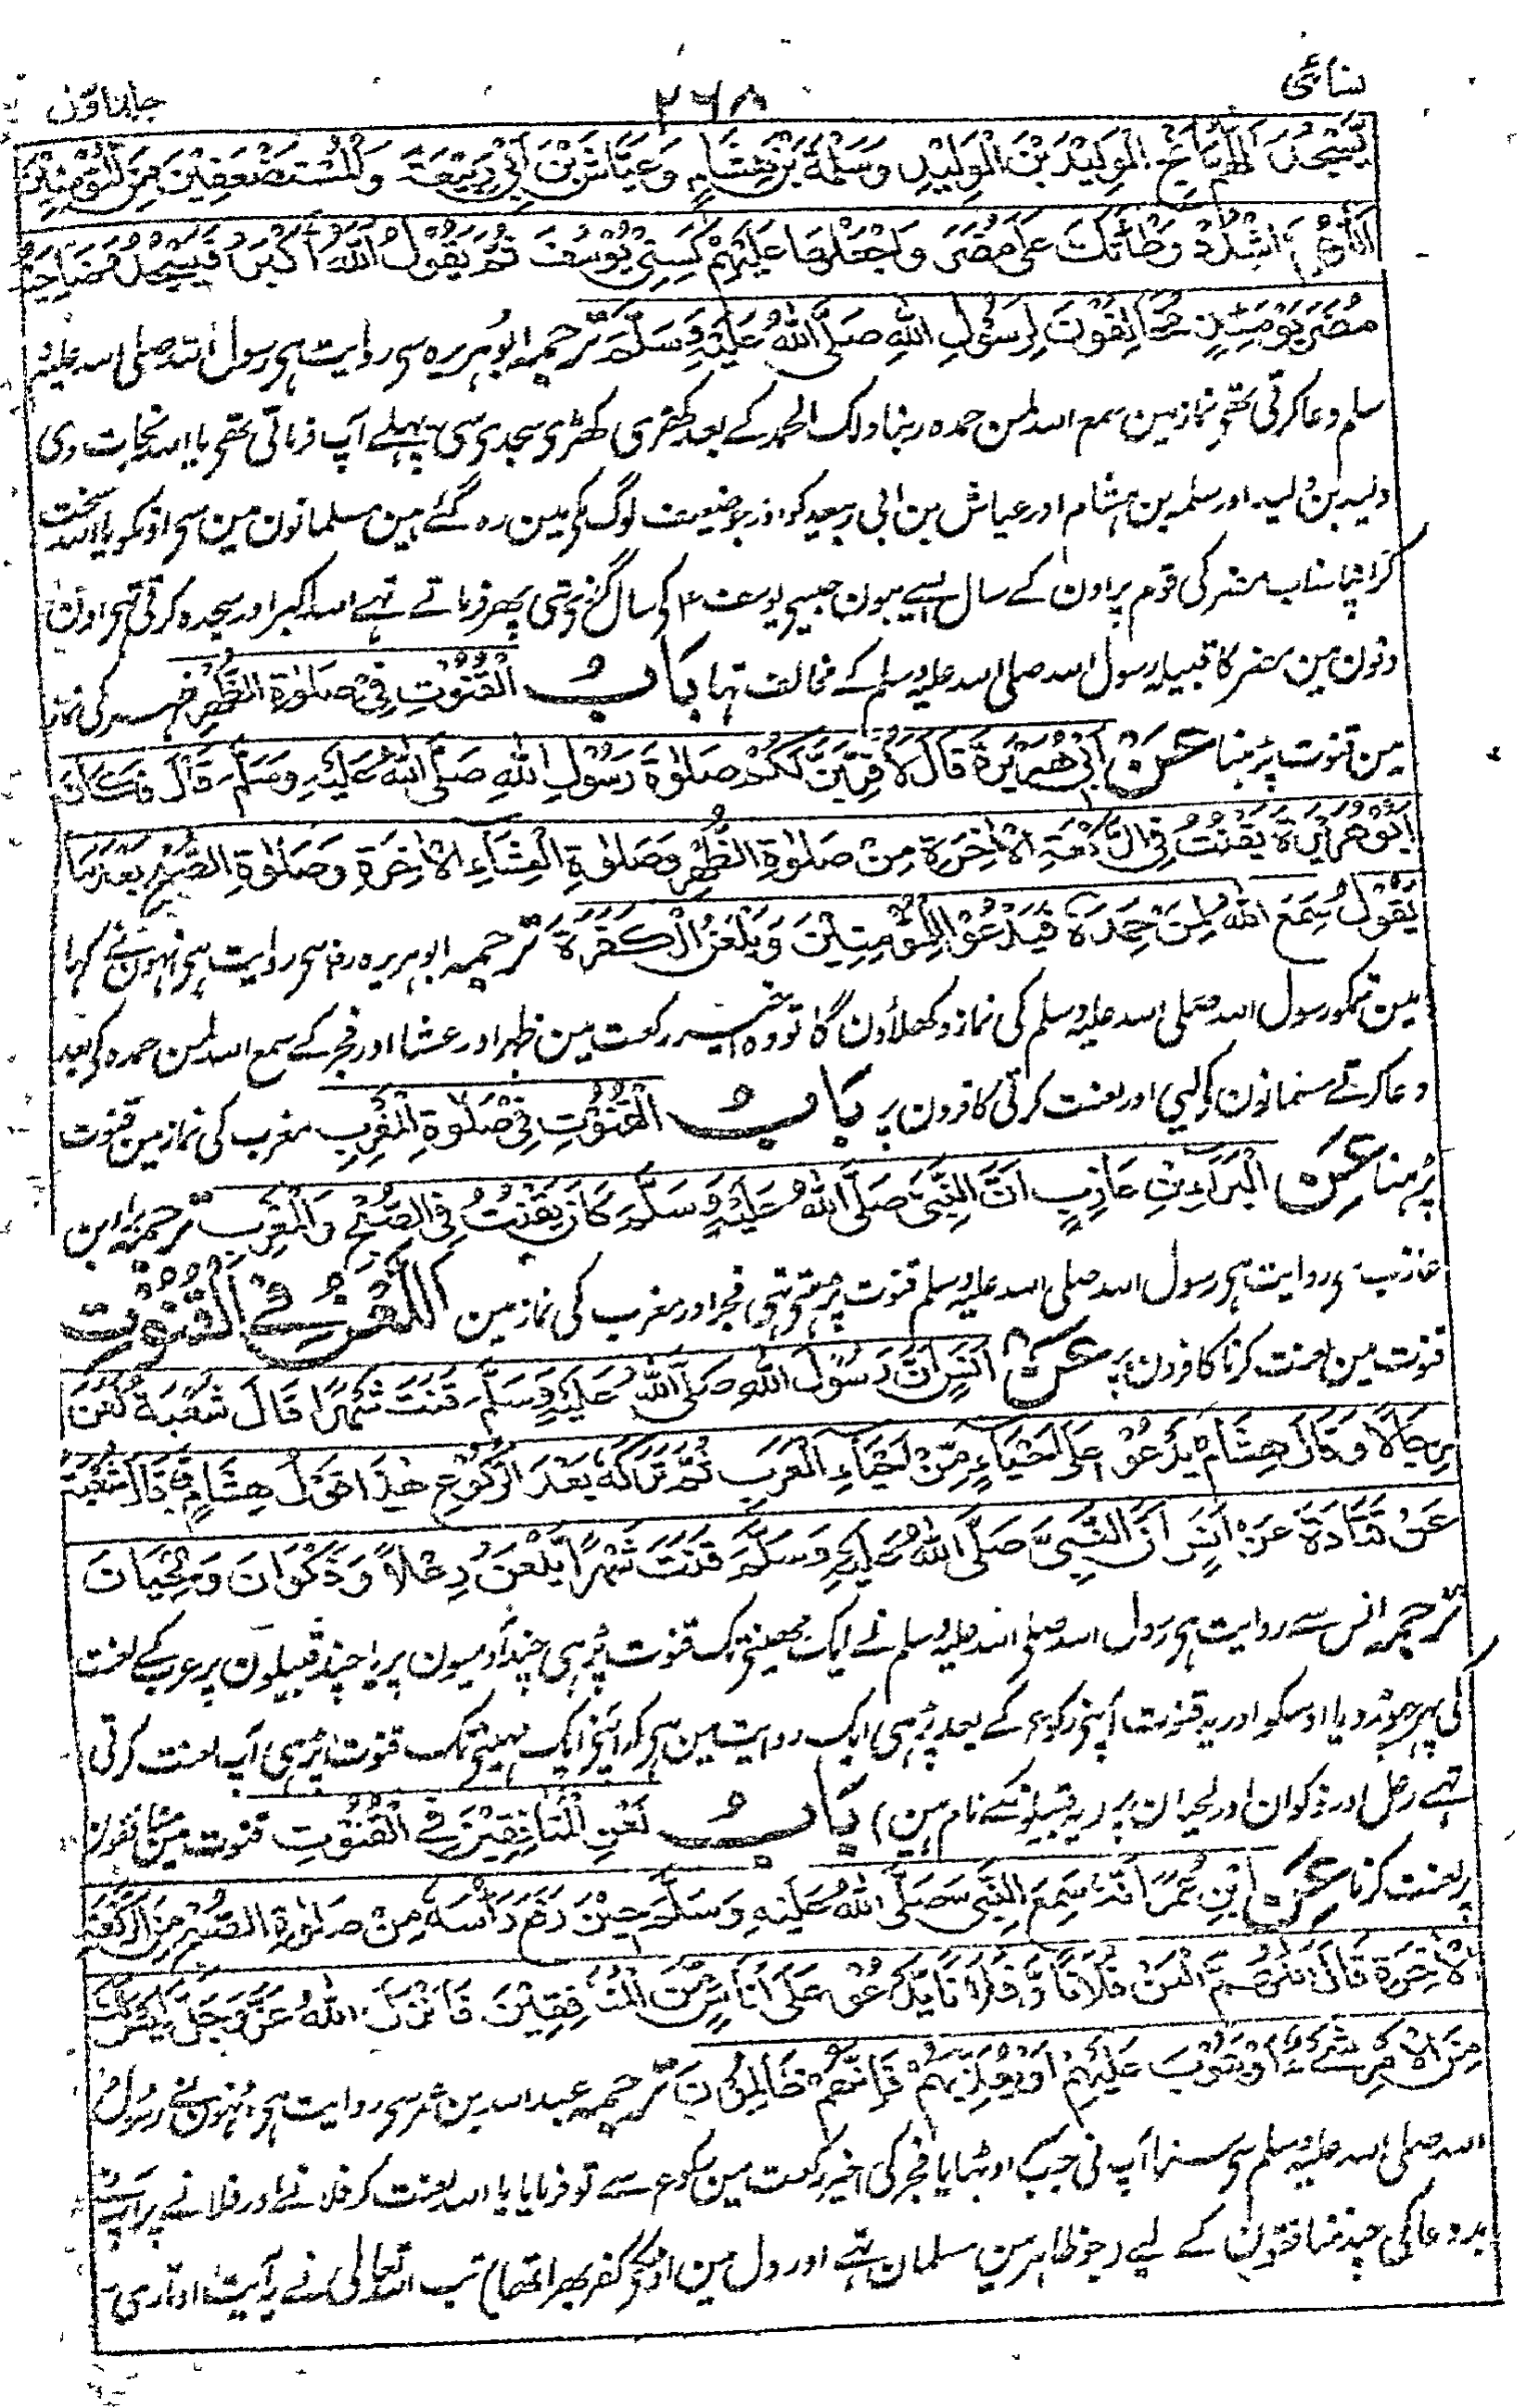 نسائی ۲۶۸ جلد اوّل
يَسْجُدَ اَللّٰهُمَّ اَنْجِ الْوَلِيْدَ بْنَ الْوَلِيْدِ وَسَلَمَةَ بْنَ هِشَامٍ وَعَيَّاشَ بْنَ اَبِيْ رَبِيْعَةَ وَالْمُسْتَضْعَفِيْنَ مِنَ الْمُؤْمِنِيْنَ
اَللّٰهُمَّ اشْدُدْ وَطْأَتَكَ عَلٰى مُضَرَ وَاجْعَلْهَا عَلَيْهِمْ كَسِنِيْ يُوْسُفَ ثُمَّ يَقُوْلُ اَللّٰهُ اَكْبَرُ فَيَسْجُدُ وَضَاحِيَةُ
مُضَرَ يَوْمَئِذٍ مُخَالِفُوْنَ لِرَسُوْلِ اللّٰهِ صَلَّى اللّٰهُ عَلَيْهِ وَسَلَّمَ ترجمہ ابوہریرہ سی روایت ہی رسول اللہ صلی اللہ علیہ و
سلم دعا کرتی تھی نماز مین سمع اللہ لمن حمدہ ربنا ولک الحمد کے بعد کھڑی کھڑی سجدی سی پہلے آپ فرماتی تھی یا اللہ نجات دی
ولید بن ولید اور سلمہ بن ہشام اور عیاش بن ابی ربیعہ کو اور جو ضعیف لوگ مکی مین رہ گئے ہین مسلمانون مین سی اونکو یا اللہ سخت
کر اپنا عذاب مضر کی قوم پر اون کے سال ایسے ہون جیسی یوسف ؑ کی سال گذری تھی پھر فرماتے تہے اللہ اکبر اور سجدہ کرتی تھی اون
دنون مین مضر کا قبیلہ رسول اللہ صلی اللہ علیہ وسلم کے مخالف تہا بَابُ الْقُنُوْتِ فِيْ صَلٰوةِ الظُّهْرِ ظہر کی نماز
مین قنوت پڑہنا عَنْ اَبِيْ هُرَيْرَةَ قَالَ لَاُقَرِّبَنَّ لَكُمْ صَلٰوةَ رَسُوْلِ اللّٰهِ صَلَّى اللّٰهُ عَلَيْهِ وَسَلَّمَ قَالَ فَكَانَ
اَبُوْ هُرَيْرَةَ يَقْنُتُ فِي الرَّكْعَةِ الْاٰخِرَةِ مِنْ صَلٰوةِ الظُّهْرِ وَصَلٰوةِ الْعِشَاءِ الْاٰخِرَةِ وَصَلٰوةِ الصُّبْحِ بَعْدَ مَا
يَقُوْلُ سَمِعَ اللّٰهُ لِمَنْ حَمِدَهُ فَيَدْعُوْ لِلْمُؤْمِنِيْنَ وَيَلْعَنُ الْكَفَرَةَ ترجمہ ابوہریرہ رض سی روایت ہی انہون نے کہا
مین تمکو رسول اللہ صلی اللہ علیہ وسلم کی نماز دکھلاؤن گا تو وہ اخیر رکعت مین ظہر اور عشا اور فجر کے سمع اللہ لمن حمدہ کی بعد
دعا کرتے مسلمانون کی لیی اور لعنت کرتی کافرون پر بَابُ الْقُنُوْتِ فِيْ صَلٰوةِ الْمَغْرِبِ مغرب کی نماز مین قنوت
پڑہنا عَنِ الْبَرَاءِ بْنِ عَازِبٍ اَنَّ النَّبِيَّ صَلَّى اللّٰهُ عَلَيْهِ وَسَلَّمَ كَانَ يَقْنُتُ فِي الصُّبْحِ وَالْمَغْرِبِ ترجمہ براء بن
عازب سی روایت ہی رسول اللہ صلی اللہ علیہ وسلم قنوت پڑہتی تھی فجر اور مغرب کی نماز مین اَللَّعْنُ فِي الْقُنُوْتِ
قنوت مین لعنت کرنا کافرون پر عَنْ اَنَسٍ اَنَّ رَسُوْلَ اللّٰهِ صَلَّى اللّٰهُ عَلَيْهِ وَسَلَّمَ قَنَتَ شَهْرًا قَالَ شُعْبَةُ لَعَنَ
رِجَالًا وَقَالَ هِشَامٌ يَدْعُوْ عَلٰى اَحْيَاءٍ مِّنْ اَحْيَاءِ الْعَرَبِ ثُمَّ تَرَكَهٗ بَعْدَ الرُّكُوْعِ هٰذَا قَوْلُ هِشَامٍ وَقَالَ شُعْبَةُ
عَنْ قَتَادَةَ عَنْ اَنَسٍ اَنَّ النَّبِيَّ صَلَّى اللّٰهُ عَلَيْهِ وَسَلَّمَ قَنَتَ شَهْرًا يَّلْعَنُ رِعْلًا وَّذَكْوَانَ وَلِحْيَانَ
ترجمہ انس سے روایت ہی رسول اللہ صلی اللہ علیہ وسلم نے ایک مہینے تک قنوت پڑہی چند آدمیون پر یا چند قبیلون پر عرب کے لعنت
کی پہر چھوڑ دیا اوسکو اور یہ قنوت آپنی رکوع کے بعد پڑہی ایک روایت مین ہی کہ آپنے ایک مہینے تک قنوت پڑہی آپ لعنت کرتی
تہے رعل اور ذکوان اور لحیان پر (یہ قبیلونکے نام ہین) بَابُ لَعْنِ الْمُنَافِقِيْنَ فِي الْقُنُوْتِ قنوت مین منافقون
پر لعنت کرنا عَنِ ابْنِ عُمَرَ اَنَّهٗ سَمِعَ النَّبِيَّ صَلَّى اللّٰهُ عَلَيْهِ وَسَلَّمَ حِيْنَ رَفَعَ رَأْسَهٗ مِنْ صَلٰوةِ الصُّبْحِ مِنَ الرَّكْعَةِ
الْاٰخِرَةِ قَالَ اللّٰهُمَّ الْعَنْ فُلَانًا وَّفُلَانًا يَّدْعُوْ عَلٰى اُنَاسٍ مِّنَ الْمُنَافِقِيْنَ فَاَنْزَلَ اللّٰهُ عَزَّ وَجَلَّ لَيْسَ لَكَ
مِنَ الْاَمْرِ شَيْءٌ اَوْ يَتُوْبَ عَلَيْهِمْ اَوْ يُعَذِّبَهُمْ فَاِنَّهُمْ ظَالِمُوْنَ ترجمہ عبداللہ بن عمر سی روایت ہی اونہون نے رسول
اللہ صلی اللہ علیہ وسلم سی سنا آپ نی جب اوٹہایا فجر کی اخیر رکعت مین رکوع سے تو فرمایا یا اللہ لعنت کر فلانے اور فلانے پر آپنے
بددعا کی چند منافقون کے لیے (جو ظاہر مین مسلمان تہے اور دل مین اونکے کفر بھرا تھا) تب اللہ تعالی نے یہ آیت اوتاری۔